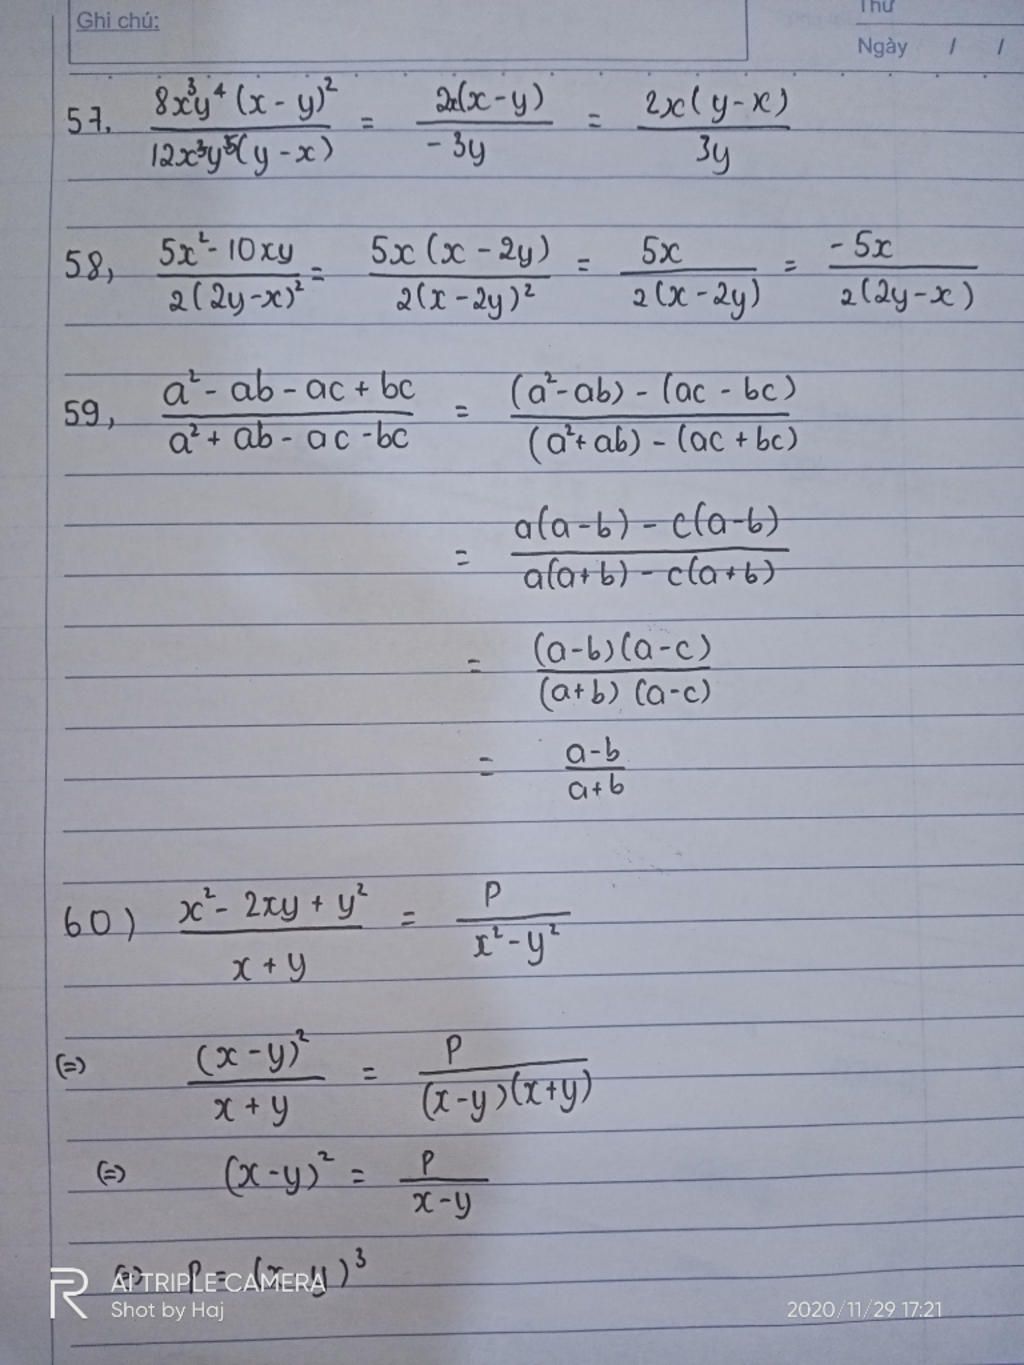 Ghi chú:
Thứ
Ngày / /
57. 8x³y⁴(x-y)² / 12x³y⁵(y-x) = 2x(x-y) / -3y = 2x(y-x) / 3y
58, 5x²-10xy / 2(2y-x)² = 5x(x-2y) / 2(x-2y)² = 5x / 2(x-2y) = -5x / 2(2y-x)
59, a²-ab-ac+bc / a²+ab-ac-bc = (a²-ab)-(ac-bc) / (a²+ab)-(ac+bc)
= a(a-b)-c(a-b) / a(a+b)-c(a+b)
= (a-b)(a-c) / (a+b)(a-c)
= a-b / a+b
60) x²-2xy+y² / x+y = P / x²-y²
(=) (x-y)² / x+y = P / (x-y)(x+y)
(=) (x-y)² = P / x-y
(=) P = (x-y)³
AI TRIPLE CAMERA
Shot by Haj
2020/11/29 17:21